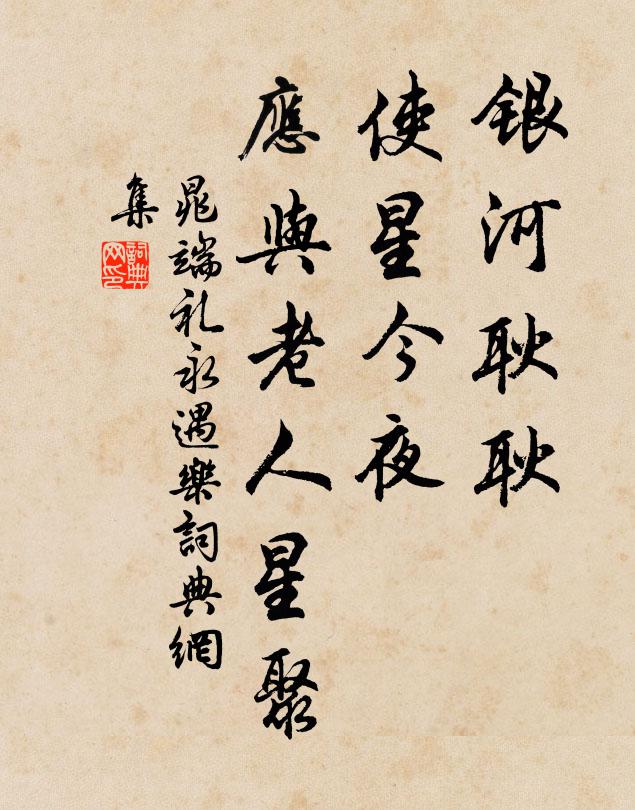 銀河耿耿
使星今夜
應與老人星聚
晁端礼永遇樂詞典網
集
詞典
网印